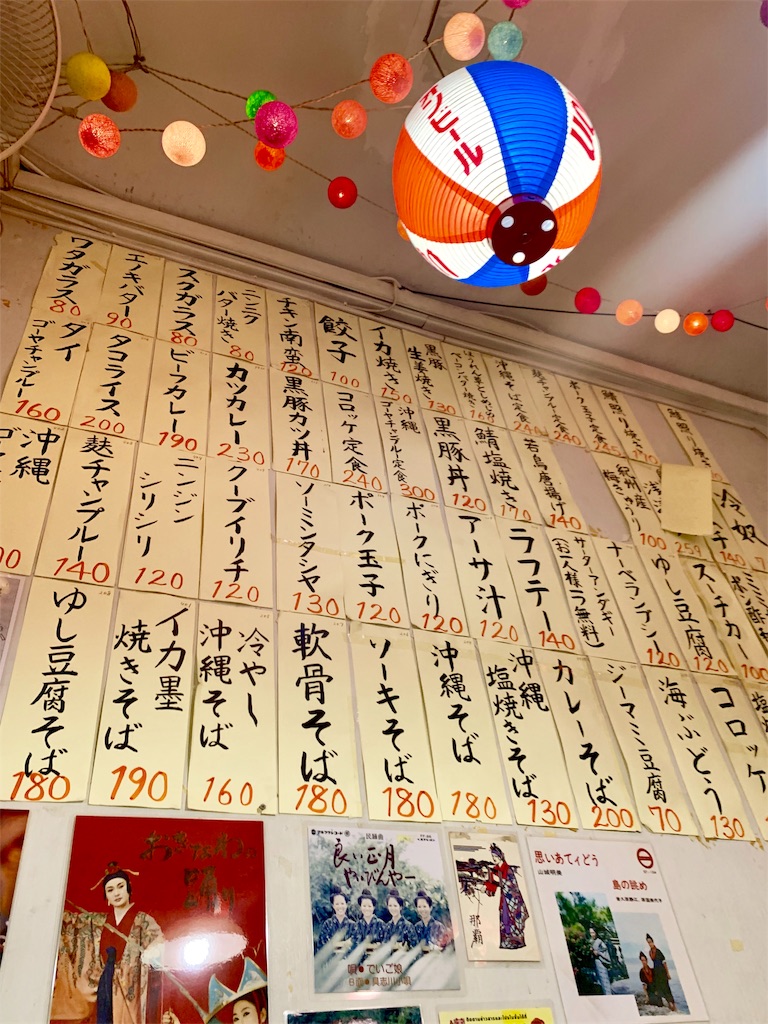 ワタガラス
80
エノキバター
90
スクガラス
80
ニンニク
バター焼き
80
チキン南蛮
120
餃子
100
イカ焼き
150
黒豚
生姜焼き
130
沖縄そば定食
240
麩チャンプルー定食
240
ポーク玉子定食
240
鯖照り焼き
170
タイ
ゴーヤチャンプルー
160
タコライス
200
ビーフカレー
190
カツカレー
230
黒豚カツ丼
170
コロッケ定食
240
沖縄
ゴーヤチャンプルー定食
300
黒豚丼
120
鯖塩焼き
170
若鳥唐揚げ
140
紀州産
梅きゅうり
100
259
冷奴
140
沖縄
麩チャンプルー
140
ニンジン
シリシリ
120
クーブイリチ
120
ソーミンタシヤ
130
ポーク玉子
120
ポークにぎり
120
アーサ汁
120
ラフテー
140
サーターアンダギー
(お一人様ラ無料)
ナーベランブシー
120
ゆし豆腐
120
スーチカー
100
ゆし豆腐そば
180
イカ墨
焼きそば
190
冷やし
沖縄そば
160
軟骨そば
180
ソーキそば
180
沖縄そば
180
沖縄
塩焼きそば
130
カレーそば
200
ジーマミ豆腐
70
海ぶどう
130
コロッケ
民謡曲
良い正月
やいびんやー
唄●でいご娘
那覇
思いあてぃどう
山城明美
島の眺め